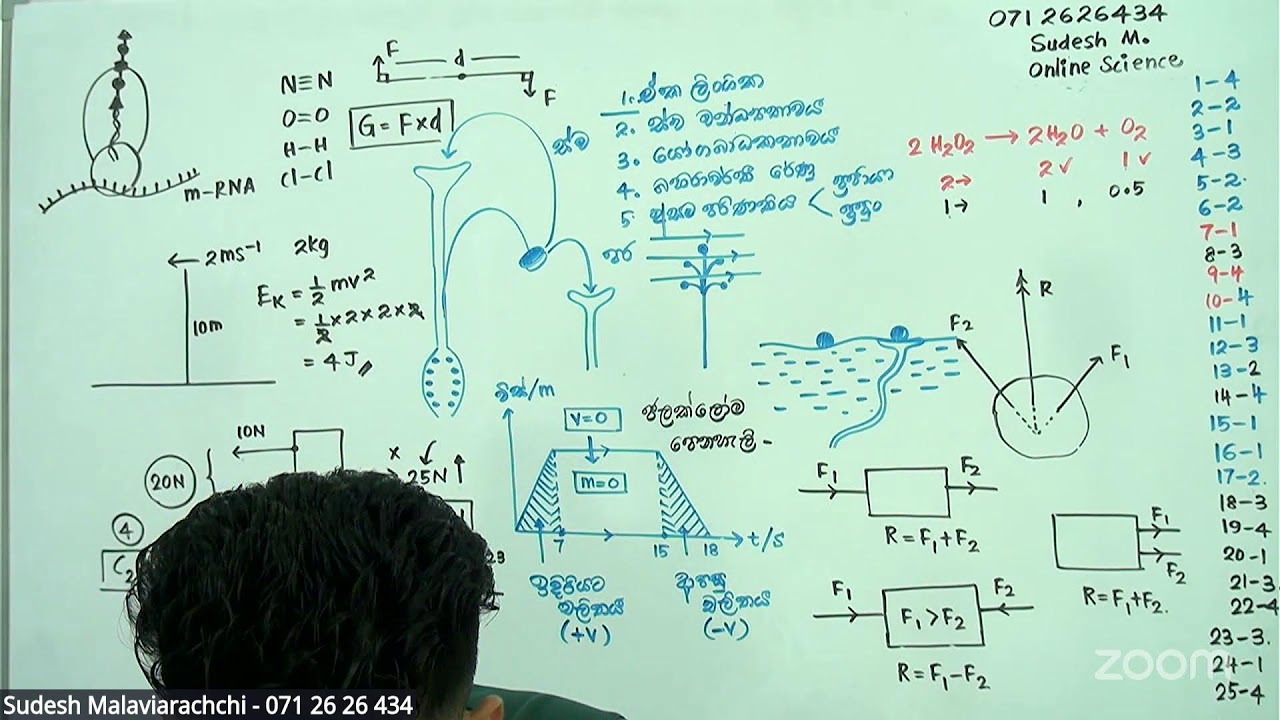 071 2626434
Sudesh M.
Online Science
m-RNA
N≡N
O=O
H-H
Cl-Cl
F
d
F
G = F×d
ස්ව
1. ඒක ලිංගික
2. ස්ව වන්ධ්‍යතාවය
3.
4. රේණු
5. අසම පරිණතිය
පර
2 H₂O₂ → 2H₂O + O₂
2→ 2✓ 1✓
1→ 1 , 0.5
1-4
2-2
3-1
4-3
5-2
6-2
7-1
8-3
9-4
10-4
11-1
12-3
13-2
14-4
15-1
16-1
17-2
18-3
19-4
20-1
21-3
22-4
23-3
24-1
25-4
← 2ms⁻¹ 2kg
10m
E_K = ½ mv²
= ½ × 2 × 2 × 2
= 4 J
10N
20N
× ✓
25N ↑
4
C₂
/m
V=0
m=0
7 15 18 t/s
ඉදිරියට
චලිතය
(+V)
ආපසු
චලිතය
(-V)
ජලක්ලෝම
F₂
R
F₁
F₁ F₂
R = F₁+F₂
F₁
F₂
R = F₁+F₂.
F₁ F₂
F₁ > F₂
R = F₁-F₂
zoom
Sudesh Malaviarachchi - 071 26 26 434